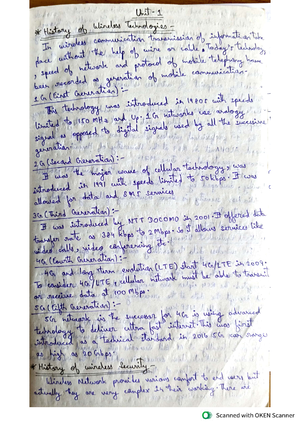 Unit - 1
* History of Wireless Technologies :-
In wireless communication transmission of information takes
place without the help of wire or cable. Today's technology
, speed of network and protocol of mobile telephony have
been recorded as generation of mobile communication.
1G (First Generation) :-
This technology was introduced in 1980s with speeds
limited to 150 MHz and up. 1G networks use analogy
signal as opposed to digital signals used by all the successive
generation.
2G (Second Generation) :-
It was the major wave of cellular technology, was
introduced in 1991 with speeds limited to 50kbps. It was
allowed for data and SMS services
3G (Third Generation) :-
It was introduced by NTT DOCOMO in 2001. It offered
transfer rate as 384 kbps to 2 Mbps. so it allows services like
video calls, video conferencing etc.
4G (Fourth Generation) :-
4G and long term evolution (LTE) start 4G/LTE in 2009.
To consider 4G/LTE, cellular network must be able to transmit
or receive data at 100 Mbps.
5G (Fifth Generation) :-
5G network is the successor for 4G is using advanced
technology to deliver ultra fast internet. This was first
introduced as a technical standard in 2016. 5G may surge
as high as 20 Gbps.
* History of wireless Security
Wireless Network provides various comfort to end users but
actually they are very complex in their working. There are
Scanned with OKEN Scanner